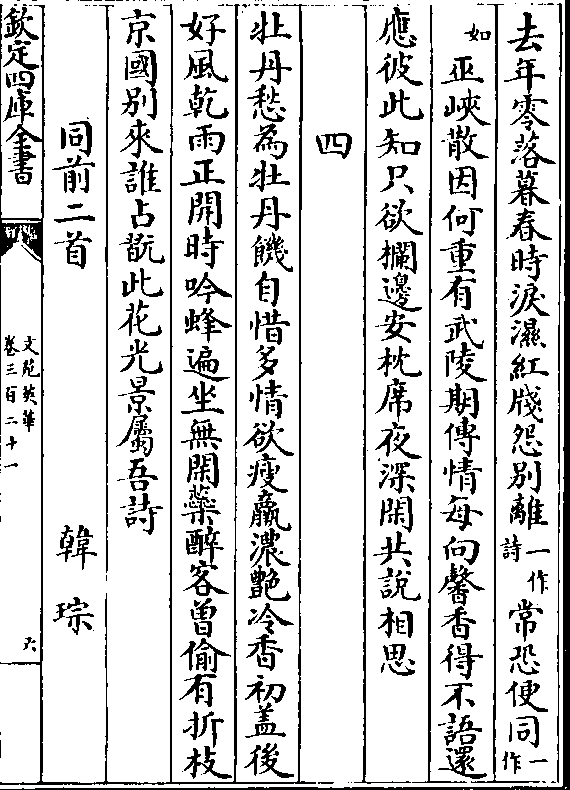 去年零落暮春時淚濕紅牋怨別離一作詩常恐便同一作
如巫峽散因何重有武陵期傳情每向馨香得不語還
應彼此知只欲欄邊安枕席夜深閑共說相思
四
牡丹愁為牡丹饑自惜多情欲瘦羸濃艶冷香初盖後
好風乾雨正開時吟蜂遍坐無閑蘂醉客曾偷有折枝
京國別來誰占翫此花光景屬吾詩
同前二首 韓琮
欽定四庫全書
文苑英華
卷三百二十一
六